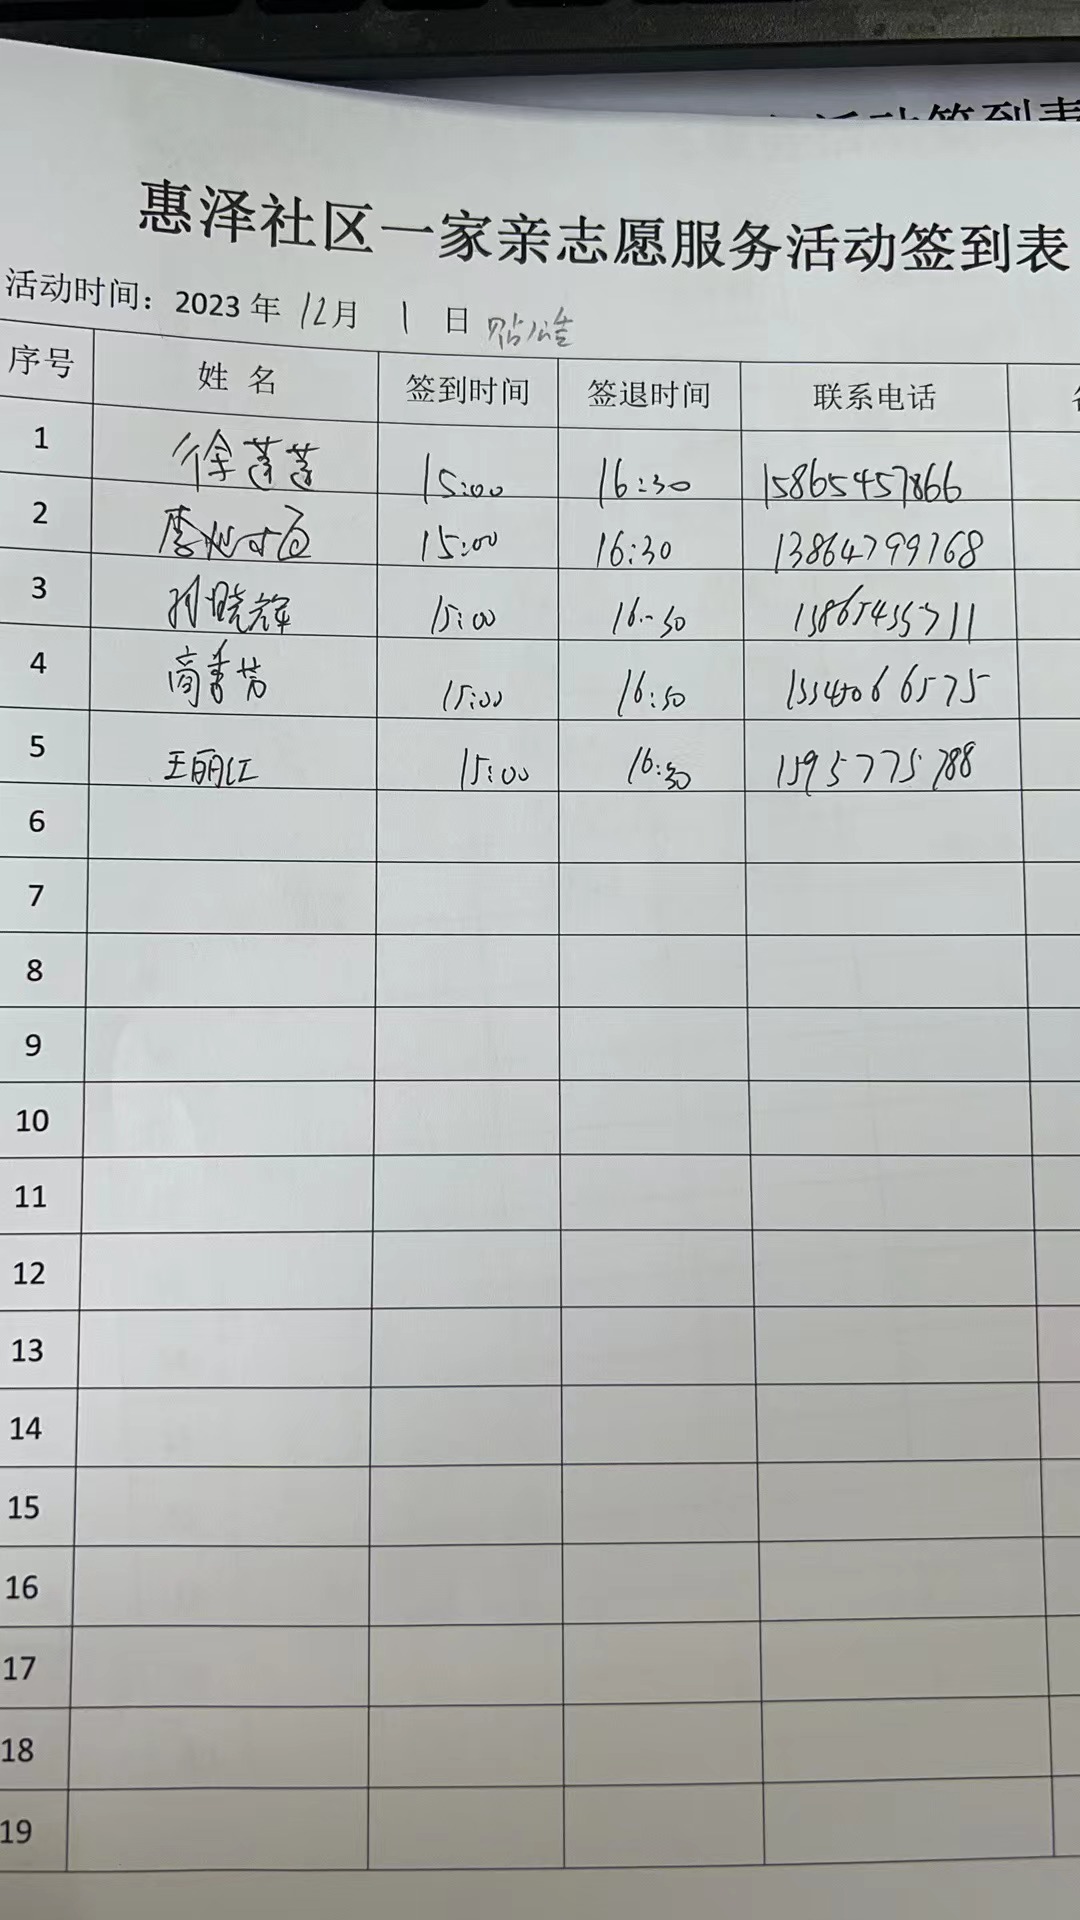 活动签到表
惠泽社区一家亲志愿服务活动签到表
活动时间：2023年 12月 1 日 贴公告
序号 姓 名 签到时间 签退时间 联系电话
1 徐莲莲 15:00 16:30 15865457866
2 李 15:00 16:30 13864799768
3 孙晓辉 15:00 16:30
4 商秀芳 15:00 16:30
5 王丽江 15:00 16:30
6
7
8
9
10
11
12
13
14
15
16
17
18
19